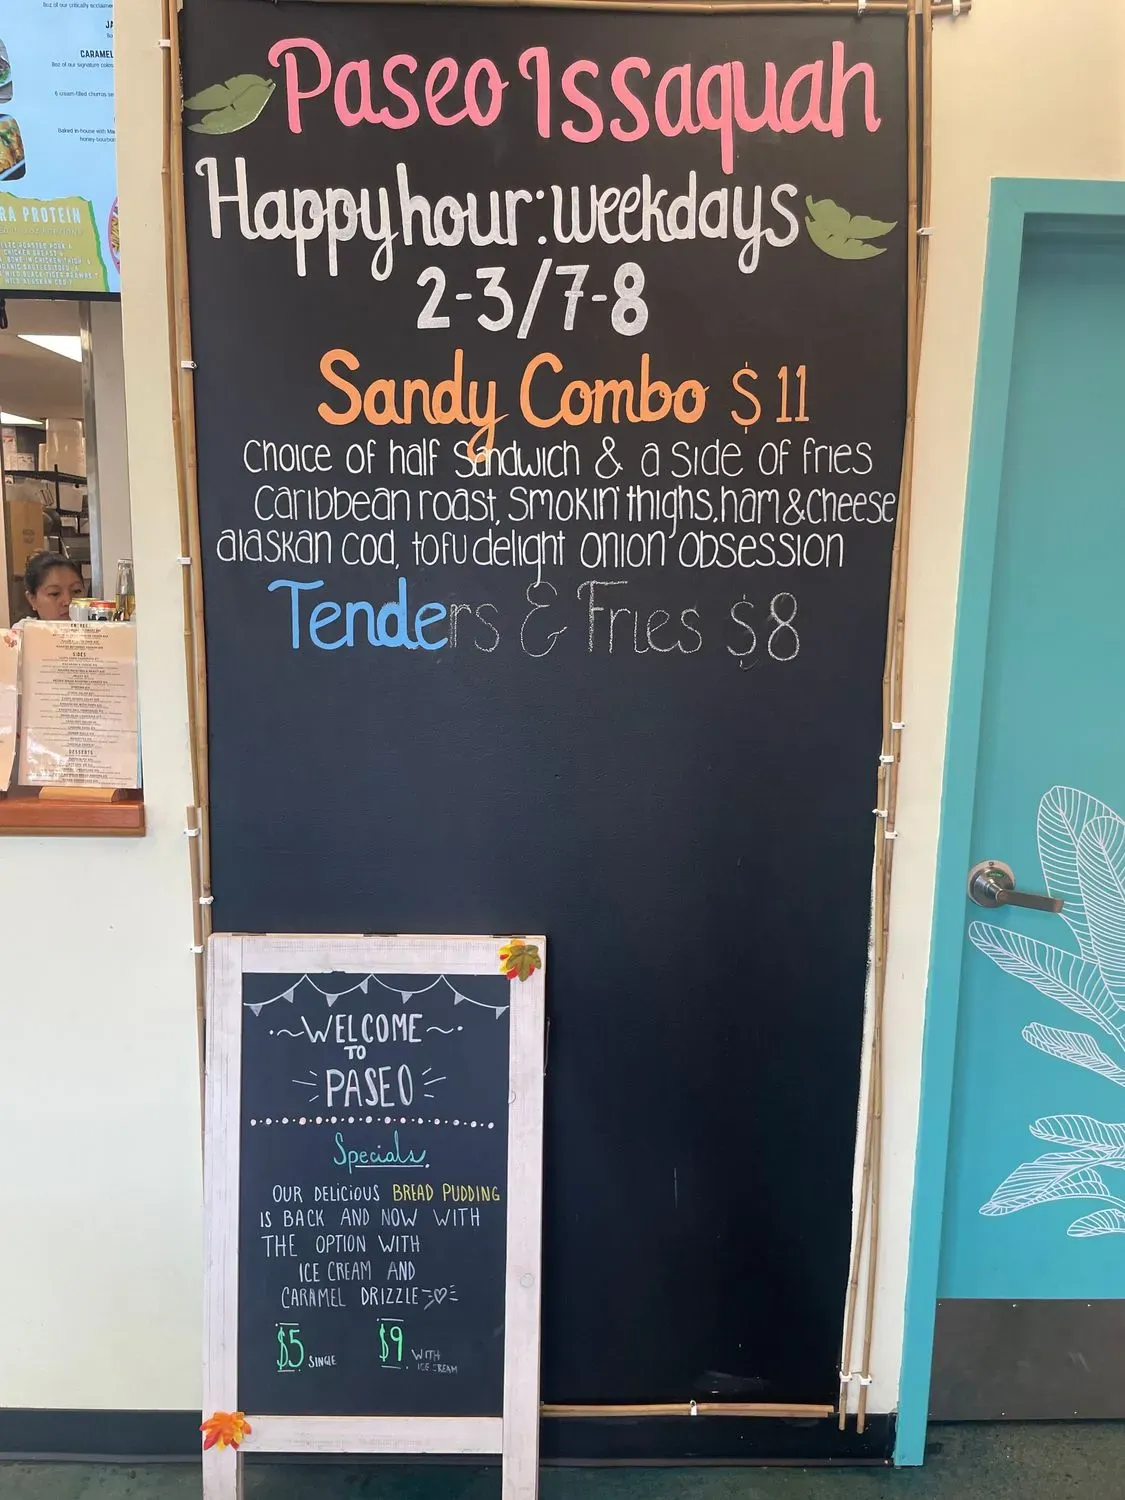 Paseo Issaquah
Happy hour: weekdays
2-3/7-8
Sandy Combo $11
Choice of half Sandwich & a side of fries
Caribbean roast, smokin' thighs, ham & cheese
alaskan cod, tofu delight onion obsession
Tenders & Fries $8
WELCOME
TO
PASEO
Specials
OUR DELICIOUS BREAD PUDDING
IS BACK AND NOW WITH
THE OPTION WITH
ICE CREAM AND
CARAMEL DRIZZLE
$5 SINGLE
$9 WITH
ICE CREAM
CARAMEL
RA PROTEIN
SIDES
DESSERTS